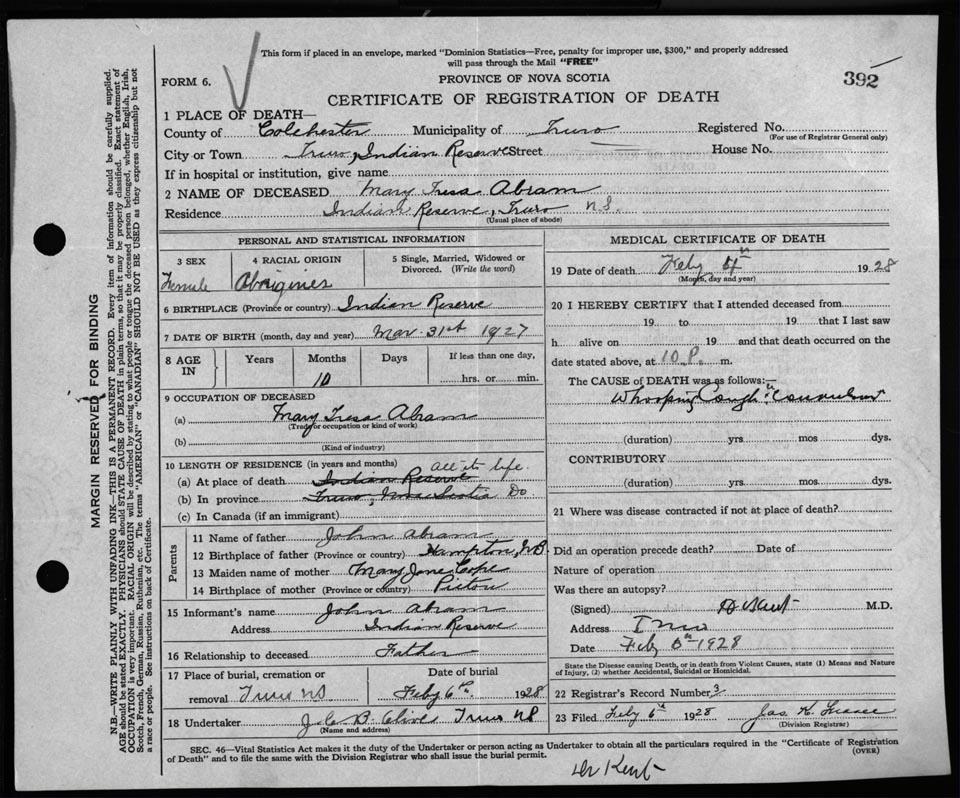 This form if placed in an envelope, marked "Dominion Statistics—Free, penalty for improper use, $300," and properly addressed
will pass through the Mail "FREE"
FORM 6.
PROVINCE OF NOVA SCOTIA
392
CERTIFICATE OF REGISTRATION OF DEATH
1 PLACE OF DEATH—
County of Colchester Municipality of Truro Registered No.
(For use of Registrar General only)
City or Town Truro, Indian Reserve Street House No.
If in hospital or institution, give name
2 NAME OF DECEASED Mary Tresa Abram
Residence Indian Reserve, Truro N.S.
(Usual place of abode)
PERSONAL AND STATISTICAL INFORMATION
3 SEX 4 RACIAL ORIGIN 5 Single, Married, Widowed or
Divorced. (Write the word)
Female Aborigines
6 BIRTHPLACE (Province or country) Indian Reserve
7 DATE OF BIRTH (month, day and year) Mar. 31st 1927
8 AGE IN Years Months Days If less than one day,
10 hrs. or min.
9 OCCUPATION OF DECEASED
(a) Mary Tresa Abram
(Trade or occupation or kind of work)
(b)
(Kind of industry)
10 LENGTH OF RESIDENCE (in years and months) all its life.
(a) At place of death Indian Reserve
(b) In province Truro, Nova Scotia Do
(c) In Canada (if an immigrant)
Parents
11 Name of father John Abram
12 Birthplace of father (Province or country) Hampton, NB
13 Maiden name of mother Mary Jane Cope
14 Birthplace of mother (Province or country) Pictou
15 Informant's name John Abram
Address Indian Reserve
16 Relationship to deceased Father
17 Place of burial, cremation or Date of burial
removal Truro NS Feby 6th. 1928
18 Undertaker Truro NS
(Name and address)
MEDICAL CERTIFICATE OF DEATH
19 Date of death Feby th 1928
(Month, day and year)
20 I HEREBY CERTIFY that I attended deceased from
19 to 19 that I last saw
h alive on 19 and that death occurred on the
date stated above, at 10 P. m.
The CAUSE of DEATH was as follows:—
Whooping Cough
(duration) yrs. mos dys.
CONTRIBUTORY
(duration) yrs. mos dys.
21 Where was disease contracted if not at place of death?
Did an operation precede death? Date of
Nature of operation
Was there an autopsy?
(Signed) Kent M.D.
Address Truro
Date Feby 6th 1928
State the Disease causing Death, or in death from Violent Causes, state (1) Means and Nature
of Injury, (2) whether Accidental, Suicidal or Homicidal.
22 Registrar's Record Number 3
23 Filed Feby 6th 1928 Jas K
(Division Registrar)
SEC. 46—Vital Statistics Act makes it the duty of the Undertaker or person acting as Undertaker to obtain all the particulars required in the "Certificate of Registration
of Death" and to file the same with the Division Registrar who shall issue the burial permit.
(OVER)
Dr Kent
MARGIN RESERVED FOR BINDING
N.B.—WRITE PLAINLY WITH UNFADING INK—THIS IS A PERMANENT RECORD. Every item of information should be carefully supplied.
AGE should be stated EXACTLY. PHYSICIANS should STATE CAUSE OF DEATH in plain terms, so that it may be properly classified. Exact statement of
OCCUPATION is very important. RACIAL ORIGIN will be described by stating to what people or tongue the deceased person belonged, whether English, Irish,
Scotch, French, German, Russian, Ruthenian, etc. The terms "AMERICAN" or "CANADIAN" SHOULD NOT BE USED as they express citizenship but not
a race or people. See instructions on back of Certificate.